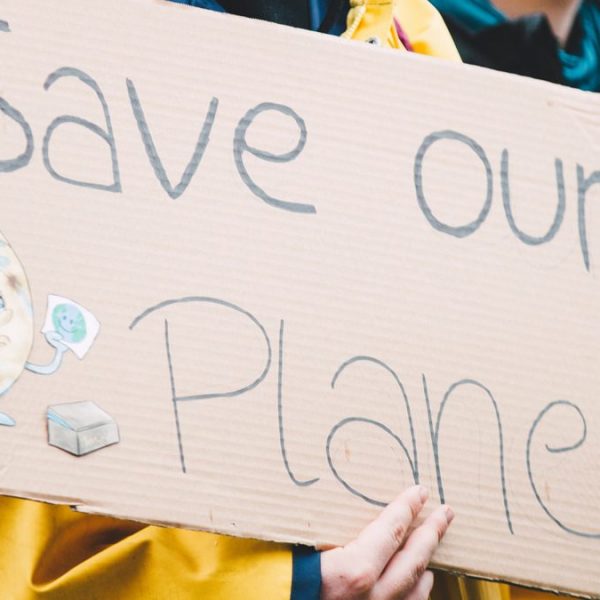 Save our
Plane